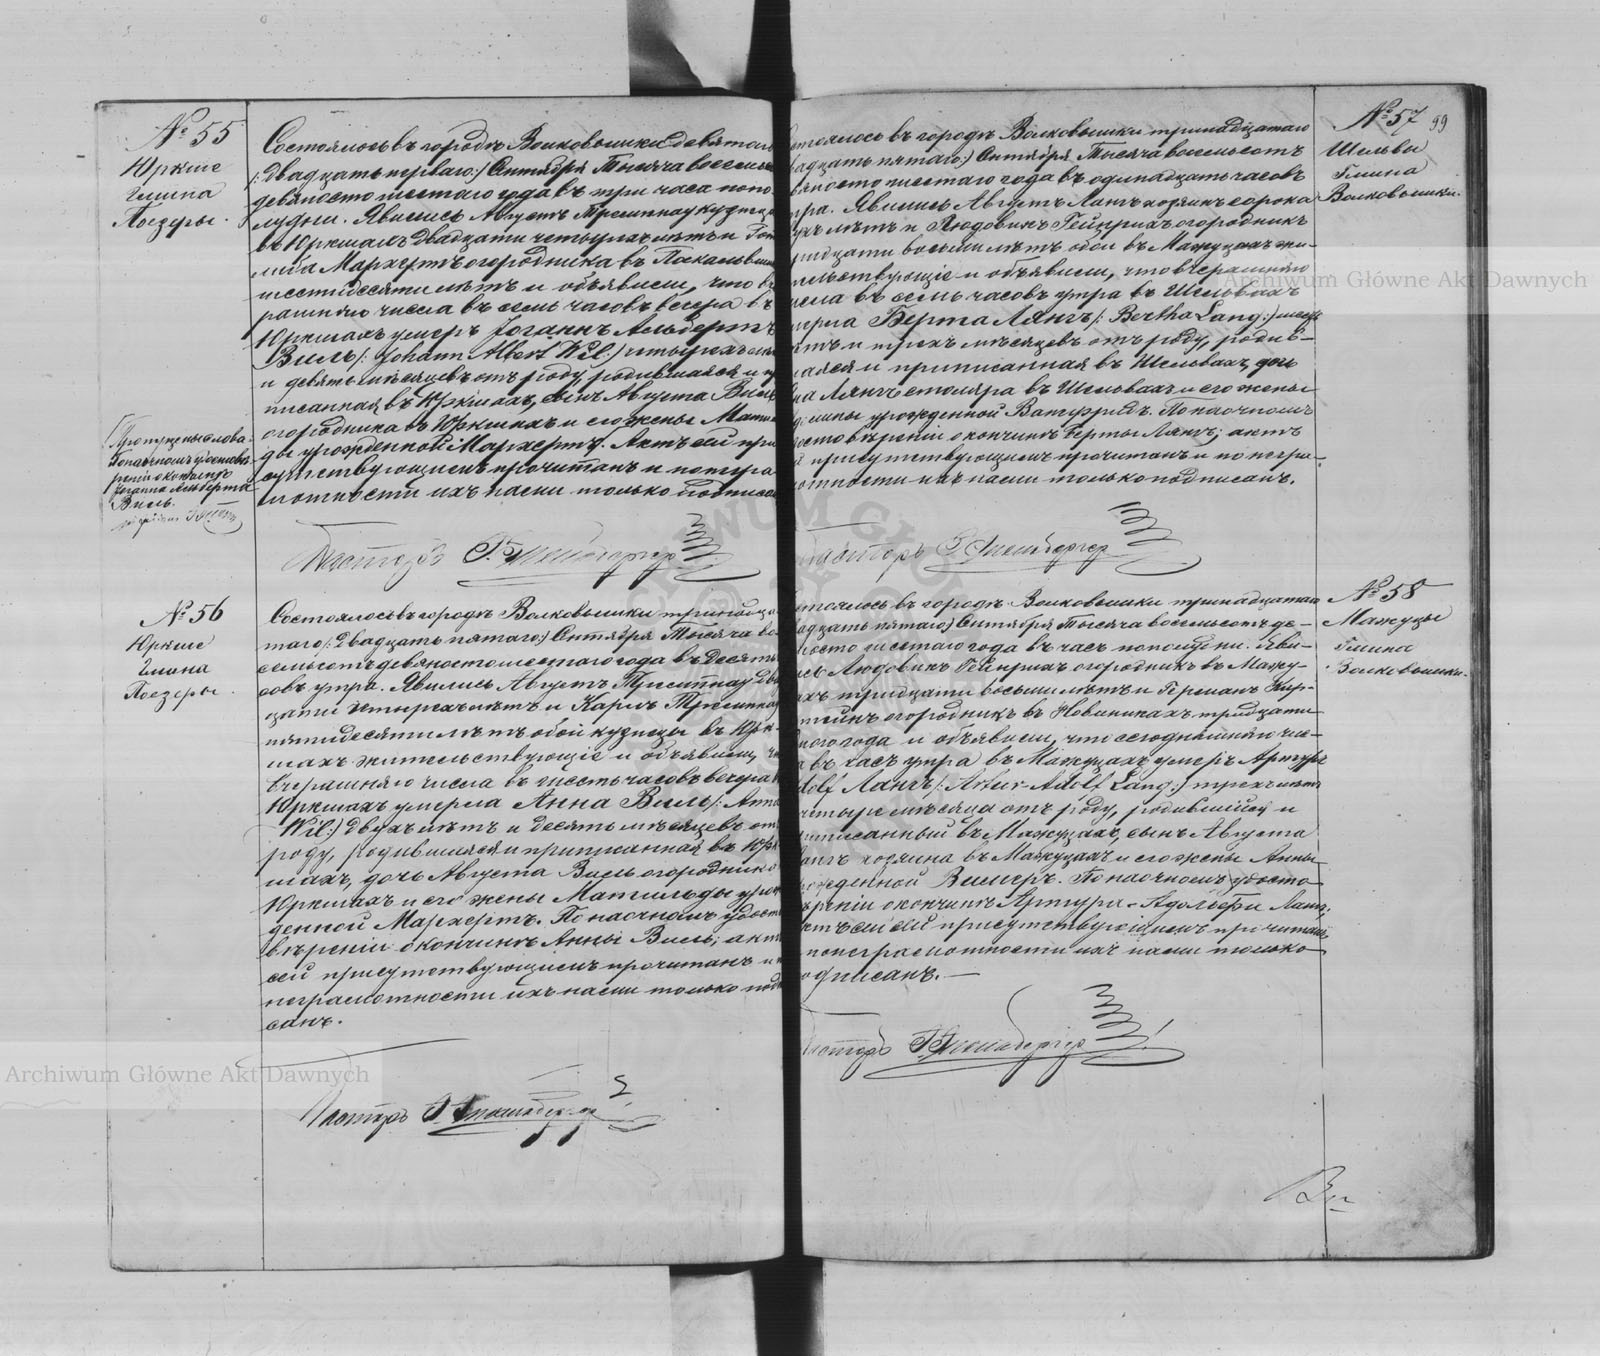 № 55
Юркше
Гмина
Поезеры.
Состоялось въ городѣ Волковышки девятаго
/: двадцать перваго:/ Сентября Тысяча восемьсотъ
девяносто шестаго года въ три часа попо-
лудни. Явились Августъ кузнецъ
въ Юркшахъ двадцати четырехъ лѣтъ и
Мархертъ огородника въ
шестидесяти лѣтъ и объявили, что вче-
рашняго числа въ семь часовъ вечера въ
Юркшахъ умеръ Іоганнъ Альбертъ
Виль /: Johann Albert Wil:/ четырехъ лѣтъ
и девять мѣсяцевъ отъ роду, родившаяся и при-
писанная въ Юркшахъ, сынъ Августа Виль
огородника въ Юркшахъ и его жены Матиль-
ды урожденной Мархертъ. Актъ сей при-
сутствующимъ прочитанъ и по негра-
мотности ихъ нами только подписанъ
Пропущены слова:
По наочномъ удостовѣ-
реніи о кончинѣ
Іоганна Альберта
Виль.
Пасторъ
№ 56
Юркше
Гмина
Поезеры.
Состоялось въ городѣ Волковышки тринадца-
таго /: двадцать пятаго:/ Сентября Тысяча во-
семьсотъ девяносто шестаго года въ десять ча-
совъ утра. Явились Августъ два-
дцати четырехъ лѣтъ и Карлъ
пятидесяти лѣтъ обои кузнецы въ Юрк-
шахъ жительствующіе и объявили, что
вчерашняго числа въ шесть часовъ вечера въ
Юркшахъ умерла Анна Виль /: Anna
Wil:/ двухъ лѣтъ и десять мѣсяцевъ отъ
роду, родившаяся и приписанная въ Юрк-
шахъ, дочь Августа Виль огородника
Юркшахъ и его жены Матильды урож-
денной Мархертъ. По наочномъ удосто-
вѣреніи о кончинѣ Анны Виль; актъ
сей присутствующимъ прочитанъ и по
неграмотности ихъ нами только подпи-
санъ.
Пасторъ
99
№ 57
Шельви
Гмина
Волковышки.
Состоялось въ городѣ Волковышки тринадцатаго
двадцать пятаго:/ Сентября Тысяча восемьсотъ
девяносто шестаго года въ одинадцать часовъ
утра. Явились Августъ Лангъ хозяинъ сорока
лѣтъ и Людовикъ Гейнрихъ огородникъ
тридцати восьми лѣтъ обои въ Мажуцахъ жи-
тельствующіе и объявили, что вчерашняго
числа въ семь часовъ утра въ Шельвахъ
умерла Берта Лангъ /: Bertha Lang:/ шести
лѣтъ и трехъ мѣсяцевъ отъ роду, родив-
шаяся и приписанная въ Шельвахъ, дочь
Лангъ столяра въ Шельвахъ и его жены
урожденной По наочномъ
удостовѣреніи о кончинѣ Берты Лангъ; актъ
сей присутствующимъ прочитанъ и по негра-
мотности ихъ нами только подписанъ.
Пасторъ
№ 58
Мажуцы
Гмина
Волковышки.
Состоялось въ городѣ Волковышки тринадцатаго
двадцать пятаго:/ Сентября Тысяча восемьсотъ де-
вяносто шестаго года въ часъ пополудни. Яви-
лись Людовикъ Гейнрихъ огородникъ въ Мажу-
цахъ тридцати восьми лѣтъ и Германъ
огородникъ въ Новиникахъ тридцати
года и объявили, что сегоднешняго чис-
ла въ часъ утра въ Мажуцахъ умеръ Артуръ
Адолфъ Лангъ /: Artur-Adolf Lang:/ трехъ лѣтъ
четыре мѣсяца отъ роду, родившійся и
приписанный въ Мажуцахъ, сынъ Августа
Лангъ хозяина въ Мажуцахъ и его жены Анны
урожденной По наочномъ удосто-
вѣреніи о кончинѣ Артура-Адольфа Лангъ;
актъ сей присутствующимъ прочитанъ
по неграмотности ихъ нами только
подписанъ.—
Пасторъ
Archiwum Główne Akt Dawnych
Archiwum Główne Akt Dawnych